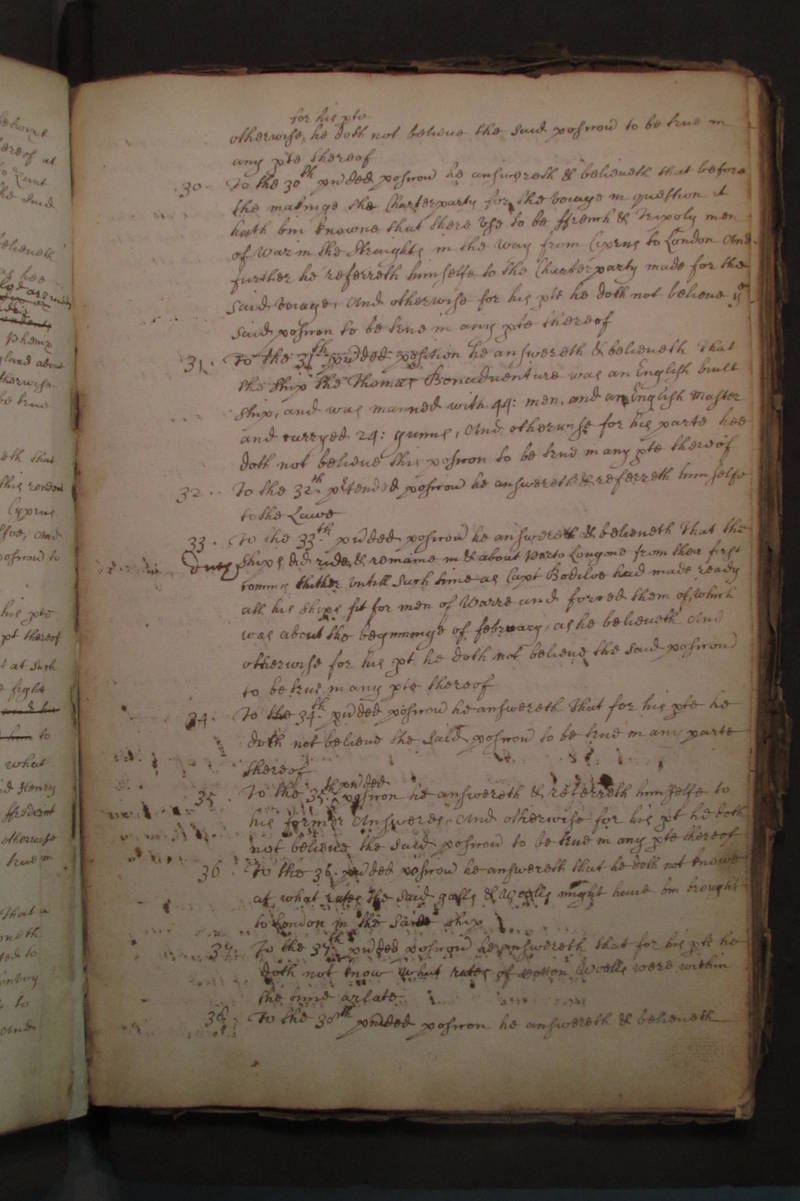 for his pte
otherwise, he doth not believe the said positiou to be true in
any pte thereof
30. To the 30th pnded positiou he answereth & believeth that before
the makinge the Charterparty for the voiage in question it
hath bin knowne that there use to be ffrench & Tripoly men
of War in the Straights in the way from Ciprus to London And
further he referreth himselfe to the Charterparty made for the
said voiage, And otherwise for his pte he doth not believe ye
said position to be true in any pte thereof
31. To the 31th pnded position he answereth & believeth That
the ship the Thomas Bonadventure was an English built
ship, and was manned with 44: men, and an English Master
and carryed 24: gunns, And otherwise for his parte hee
doth not believe this position to be true in any pte thereof
32. To the 32th prtended positiou he answereth & referreth himselfe
to the Lawe
33. To the 33th pnded positiou he answereth & believeth That the
ships did ride, & remaine in & about Porto Longone from their first
coming thither untill such time as Capt Bodiloe had made ready
all his ships fit for men of Warre and forced them of, which
was about the beginninge of february, as he believeth And
otherwise for his pt he doth not believe the said positiou
to be true in any pte thereof
34. To the 34th pnded positiou he answereth That for his pte he
doth not believe the said positiou to be true in any parte
thereof
35. To the 35th pnded position he answereth & referreth himselfe to
his former Answeres, And otherwise for his pt he doth
not believe the said positiou to be true in any pte thereof
36. To the 36. pnded positiou he answereth that he doth not knowe
at what rates the said galls & Woolls might have bin brought
to London in the said ship
37. To the 37th pnded positiou he answereth that for his pte he
doth not know what rates of cotton Woolls were within
the time arlate
38. To the 38th pnded positiou he answereth & believeth